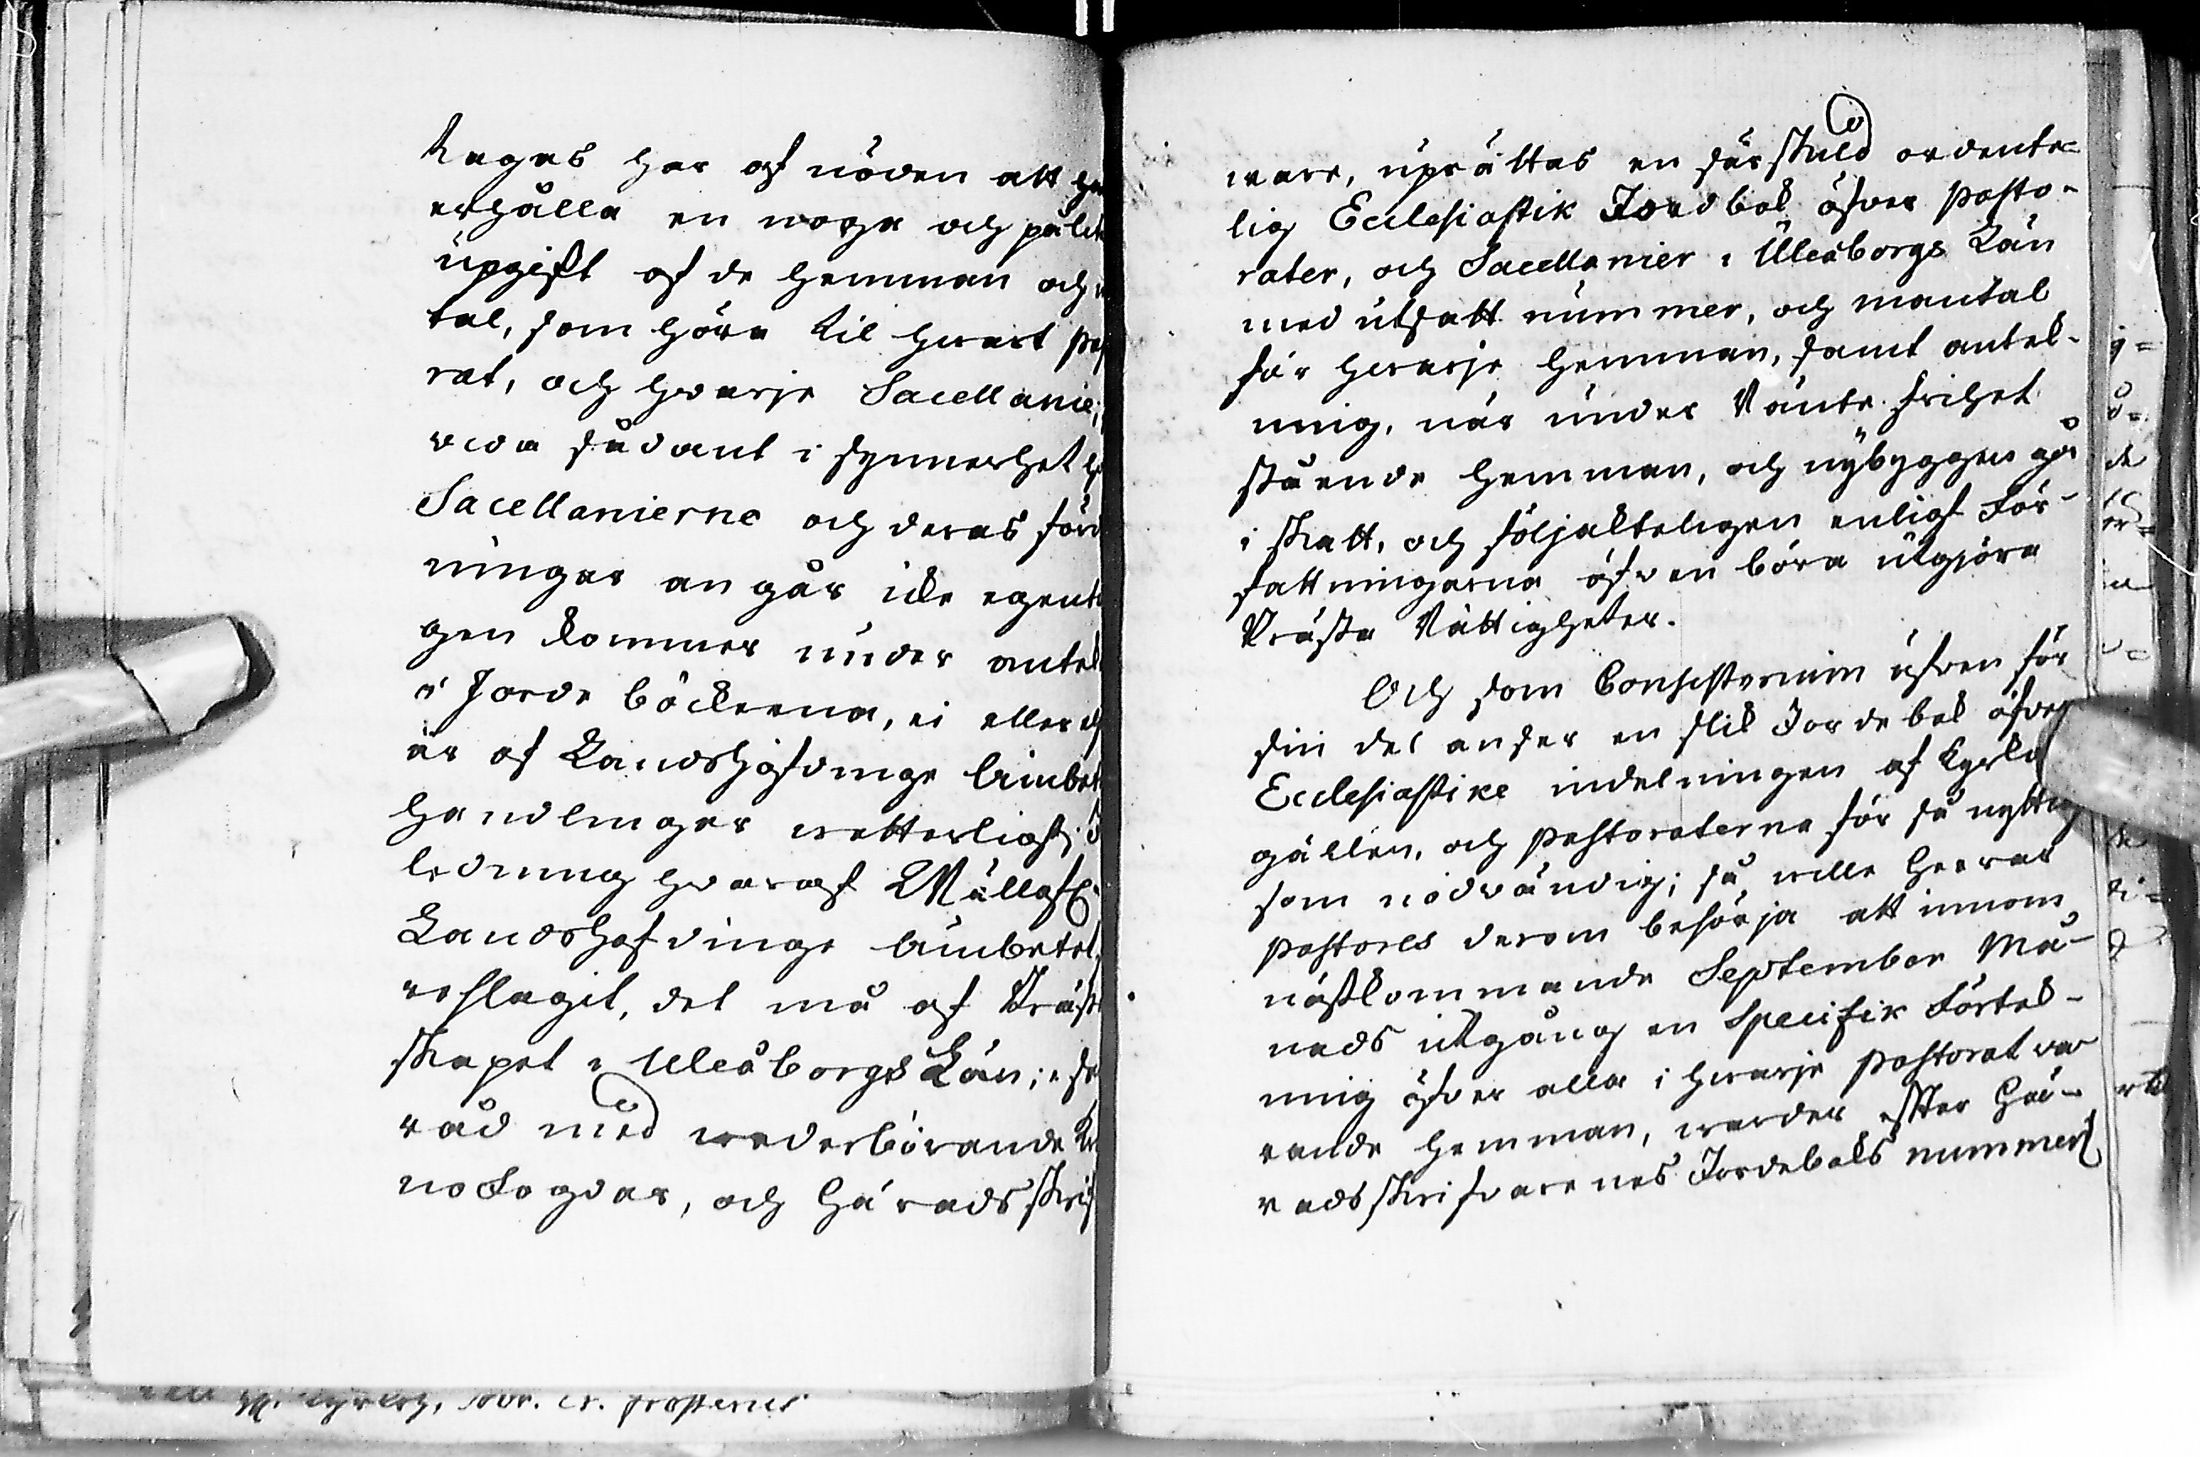 tages har af nöden att
erhålla en noga och pålit
upgift af de hemman och
tal, som höra til hwart Pas
rat, och hwarje Sacellanie;
wida sådant i synnerhet
Sacellanierne och deras förd
ningar angår icke egente
gen kommer under anteck
i Jorde böckerna, ei eller
är af Landshöfdinge Embet
handlingar wetterligt;
ledning hwaraf Wällofl:
Landshöfdinge Embetet
reslagit, det må af Präste
skapet i Uleåborgs Län, i
råd med wederbörande
no Fogdar, och Härads skrif
ware, uprättas en särskuld ordente=
lig Ecclesiastik Jordbok öfver Pasto-
rater, och Sacellanier i Uleåborgs Län
med utsatt nummer, och mantal
för hwarje hemman, samt anteck-
ning, när under Ränte frihet
stående hemman, och nybyggen gå
i skatt, och följakteligen enligt För-
fattningarna äfwen böra utgjöra
Präste Rättigheter.
Och som Consistorium äfwen för
sin del anser en slik Jordebok öfver
Ecclesiastike indelningen af Kyrko
gällen, och Pastoraterne för så nyttig
som nödwändig; så wille Herrar
Pastores derom besörja att innom
nästkommande September Må-
nads utgång en Specifik Förtek-
ning öfver alla i hwarje Pastorat wa
rande hemman, warder efter Hä-
radsskrifvarenes Jordeboks nummer